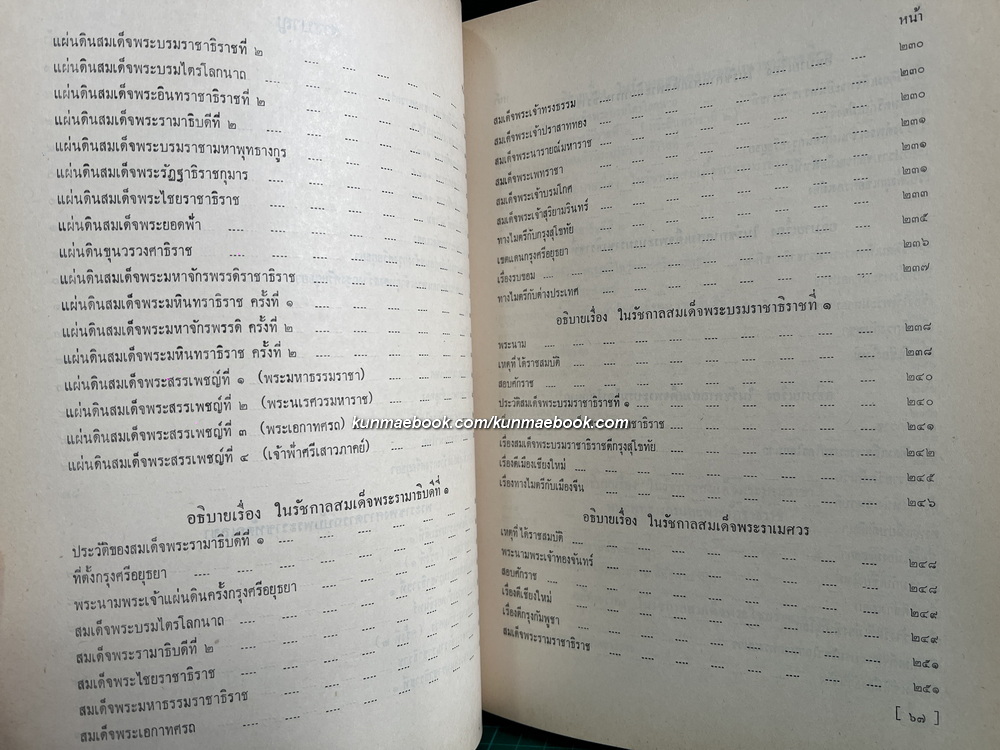 แผ่นดินสมเด็จพระบรมราชาธิราชที่ ๒
แผ่นดินสมเด็จพระบรมไตรโลกนาถ
แผ่นดินสมเด็จพระอินทราชาธิราชที่ ๒
แผ่นดินสมเด็จพระรามาธิบดีที่ ๒
แผ่นดินสมเด็จพระบรมราชามหาพุทธางกูร
แผ่นดินสมเด็จพระรัฏฐาธิราชกุมาร
แผ่นดินสมเด็จพระไชยราชาธิราช
แผ่นดินสมเด็จพระยอดฟ้า
แผ่นดินขุนวรวงศาธิราช
แผ่นดินสมเด็จพระมหาจักรพรรดิราชาธิราช
แผ่นดินสมเด็จพระมหินทราธิราช ครั้งที่ ๑
แผ่นดินสมเด็จพระมหาจักรพรรดิ ครั้งที่ ๒
แผ่นดินสมเด็จพระมหินทราธิราช ครั้งที่ ๒
แผ่นดินสมเด็จพระสรรเพชญ์ที่ ๑ (พระมหาธรรมราชา)
แผ่นดินสมเด็จพระสรรเพชญ์ที่ ๒ (พระนเรศวรมหาราช)
แผ่นดินสมเด็จพระสรรเพชญ์ที่ ๓ (พระเอกาทศรถ)
แผ่นดินสมเด็จพระสรรเพชญ์ที่ ๔ (เจ้าฟ้าศรีเสาวภาคย์)
อธิบายเรื่อง ในรัชกาลสมเด็จพระรามาธิบดีที่ ๑
ประวัติของสมเด็จพระรามาธิบดีที่ ๑
ที่ตั้งกรุงศรีอยุธยา
พระนามพระเจ้าแผ่นดินครั้งกรุงศรีอยุธยา
สมเด็จพระบรมไตรโลกนาถ
สมเด็จพระรามาธิบดีที่ ๒
สมเด็จพระไชยราชาธิราช
สมเด็จพระมหาธรรมราชาธิราช
สมเด็จพระเอกาทศรถ
หน้า
สมเด็จพระเจ้าทรงธรรม ๒๓๐
สมเด็จพระเจ้าปราสาททอง ๒๓๐
สมเด็จพระนารายณ์มหาราช ๒๓๐
สมเด็จพระเพทราชา ๒๓๑
สมเด็จพระเจ้าบรมโกศ ๒๓๑
สมเด็จพระเจ้าสุริยามรินทร์ ๒๓๓
ทางไมตรีกับกรุงสุโขทัย ๒๓๕
เขตแดนกรุงศรีอยุธยา ๒๓๖
เรื่องรบขอม ๒๓๗
ทางไมตรีกับต่างประเทศ
อธิบายเรื่อง ในรัชกาลสมเด็จพระบรมราชาธิราชที่ ๑
พระนาม ๒๓๘
เหตุที่ได้ราชสมบัติ ๒๓๘
สอบศักราช ๒๔๐
ประวัติสมเด็จพระบรมราชาธิราชที่ ๑ ๒๔๐
ชาธิราช ๒๔๑
เรื่องสมเด็จพระบรมราชาธิราชตีกรุงสุโขทัย ๒๔๒
เรื่องตีเมืองเชียงใหม่ ๒๔๕
เรื่องทางไมตรีกับเมืองจีน ๒๔๖
อธิบายเรื่อง ในรัชกาลสมเด็จพระราเมศวร
เหตุที่ได้ราชสมบัติ ๒๔๘
พระนามพระเจ้าทองจันทร์ ๒๔๘
สอบศักราช ๒๔๙
เรื่องตีเชียงใหม่ ๒๔๙
เรื่องตีกรุงกัมพูชา ๒๕๑
สมเด็จพระรามราชาธิราช ๒๕๑
[ ๖๗ ]
kunmaebook.com/kunmaebook.com